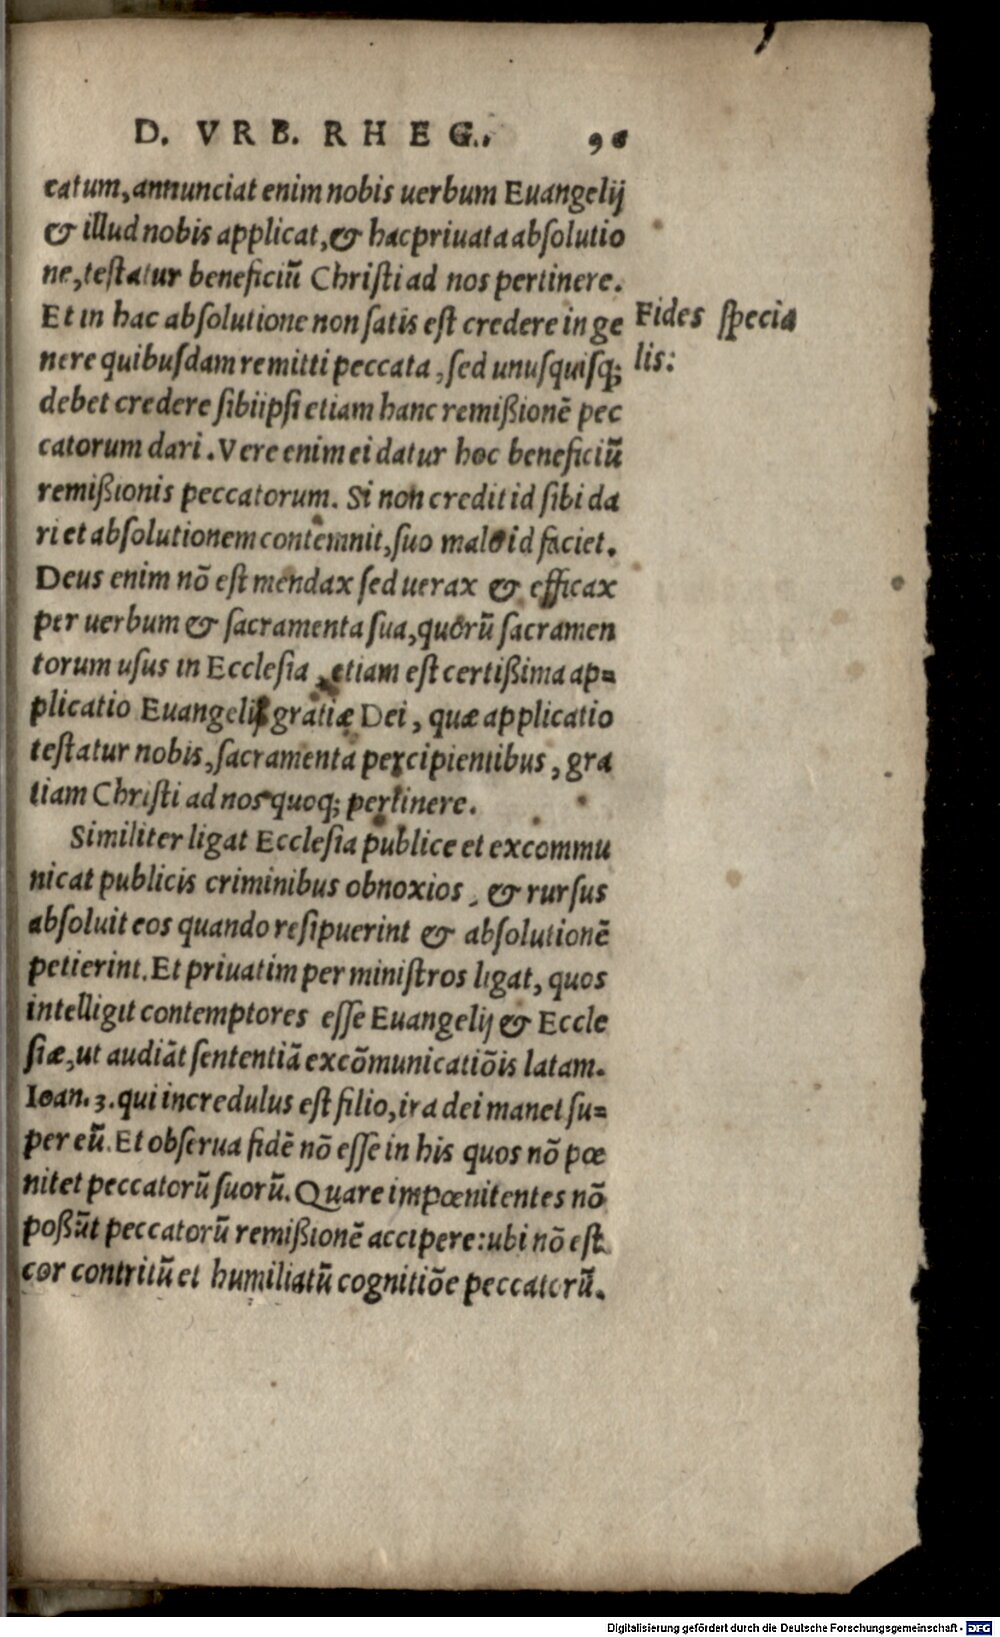 D. VRB. RHEG. 96
catum, annunciat enim nobis uerbum Euangelij
& illud nobis applicat, & hac priuata absolutio
ne, testatur beneficiū Christi ad nos pertinere.
Et in hac absolutione non satis est credere in ge
Fides specia
nere quibusdam remitti peccata, sed unusquisq;
lis:
debet credere sibiipsi etiam hanc remißionē pec
catorum dari. Vere enim ei datur hoc beneficiū
remißionis peccatorum. Si non credit id sibi da
ri et absolutionem contemnit, suo malo id faciet.
Deus enim nō est mendax sed uerax & efficax
per uerbum & sacramenta sua, quorū sacramen
torum usus in Ecclesia, etiam est certißima ap=
plicatio Euangelij gratiæ Dei, quæ applicatio
testatur nobis, sacramenta percipientibus, gra
tiam Christi ad nos quoq; pertinere.
Similiter ligat Ecclesia publice et excommu
nicat publicis criminibus obnoxios, & rursus
absoluit eos quando resipuerint & absolutionē
petierint. Et priuatim per ministros ligat, quos
intelligit contemptores esse Euangelij & Eccle
siæ, ut audiāt sententiā excōmunicatiōis latam.
Ioan. 3. qui incredulus est filio, ira dei manet su=
per eū. Et obserua fidē nō esse in his quos nō pœ
nitet peccatorū suorū. Quare impœnitentes nō
poßūt peccatorū remißionē accipere: ubi nō est
cor contritū et humiliatū cognitiōe peccatorū.
Digitalisierung gefördert durch die Deutsche Forschungsgemeinschaft - DFG